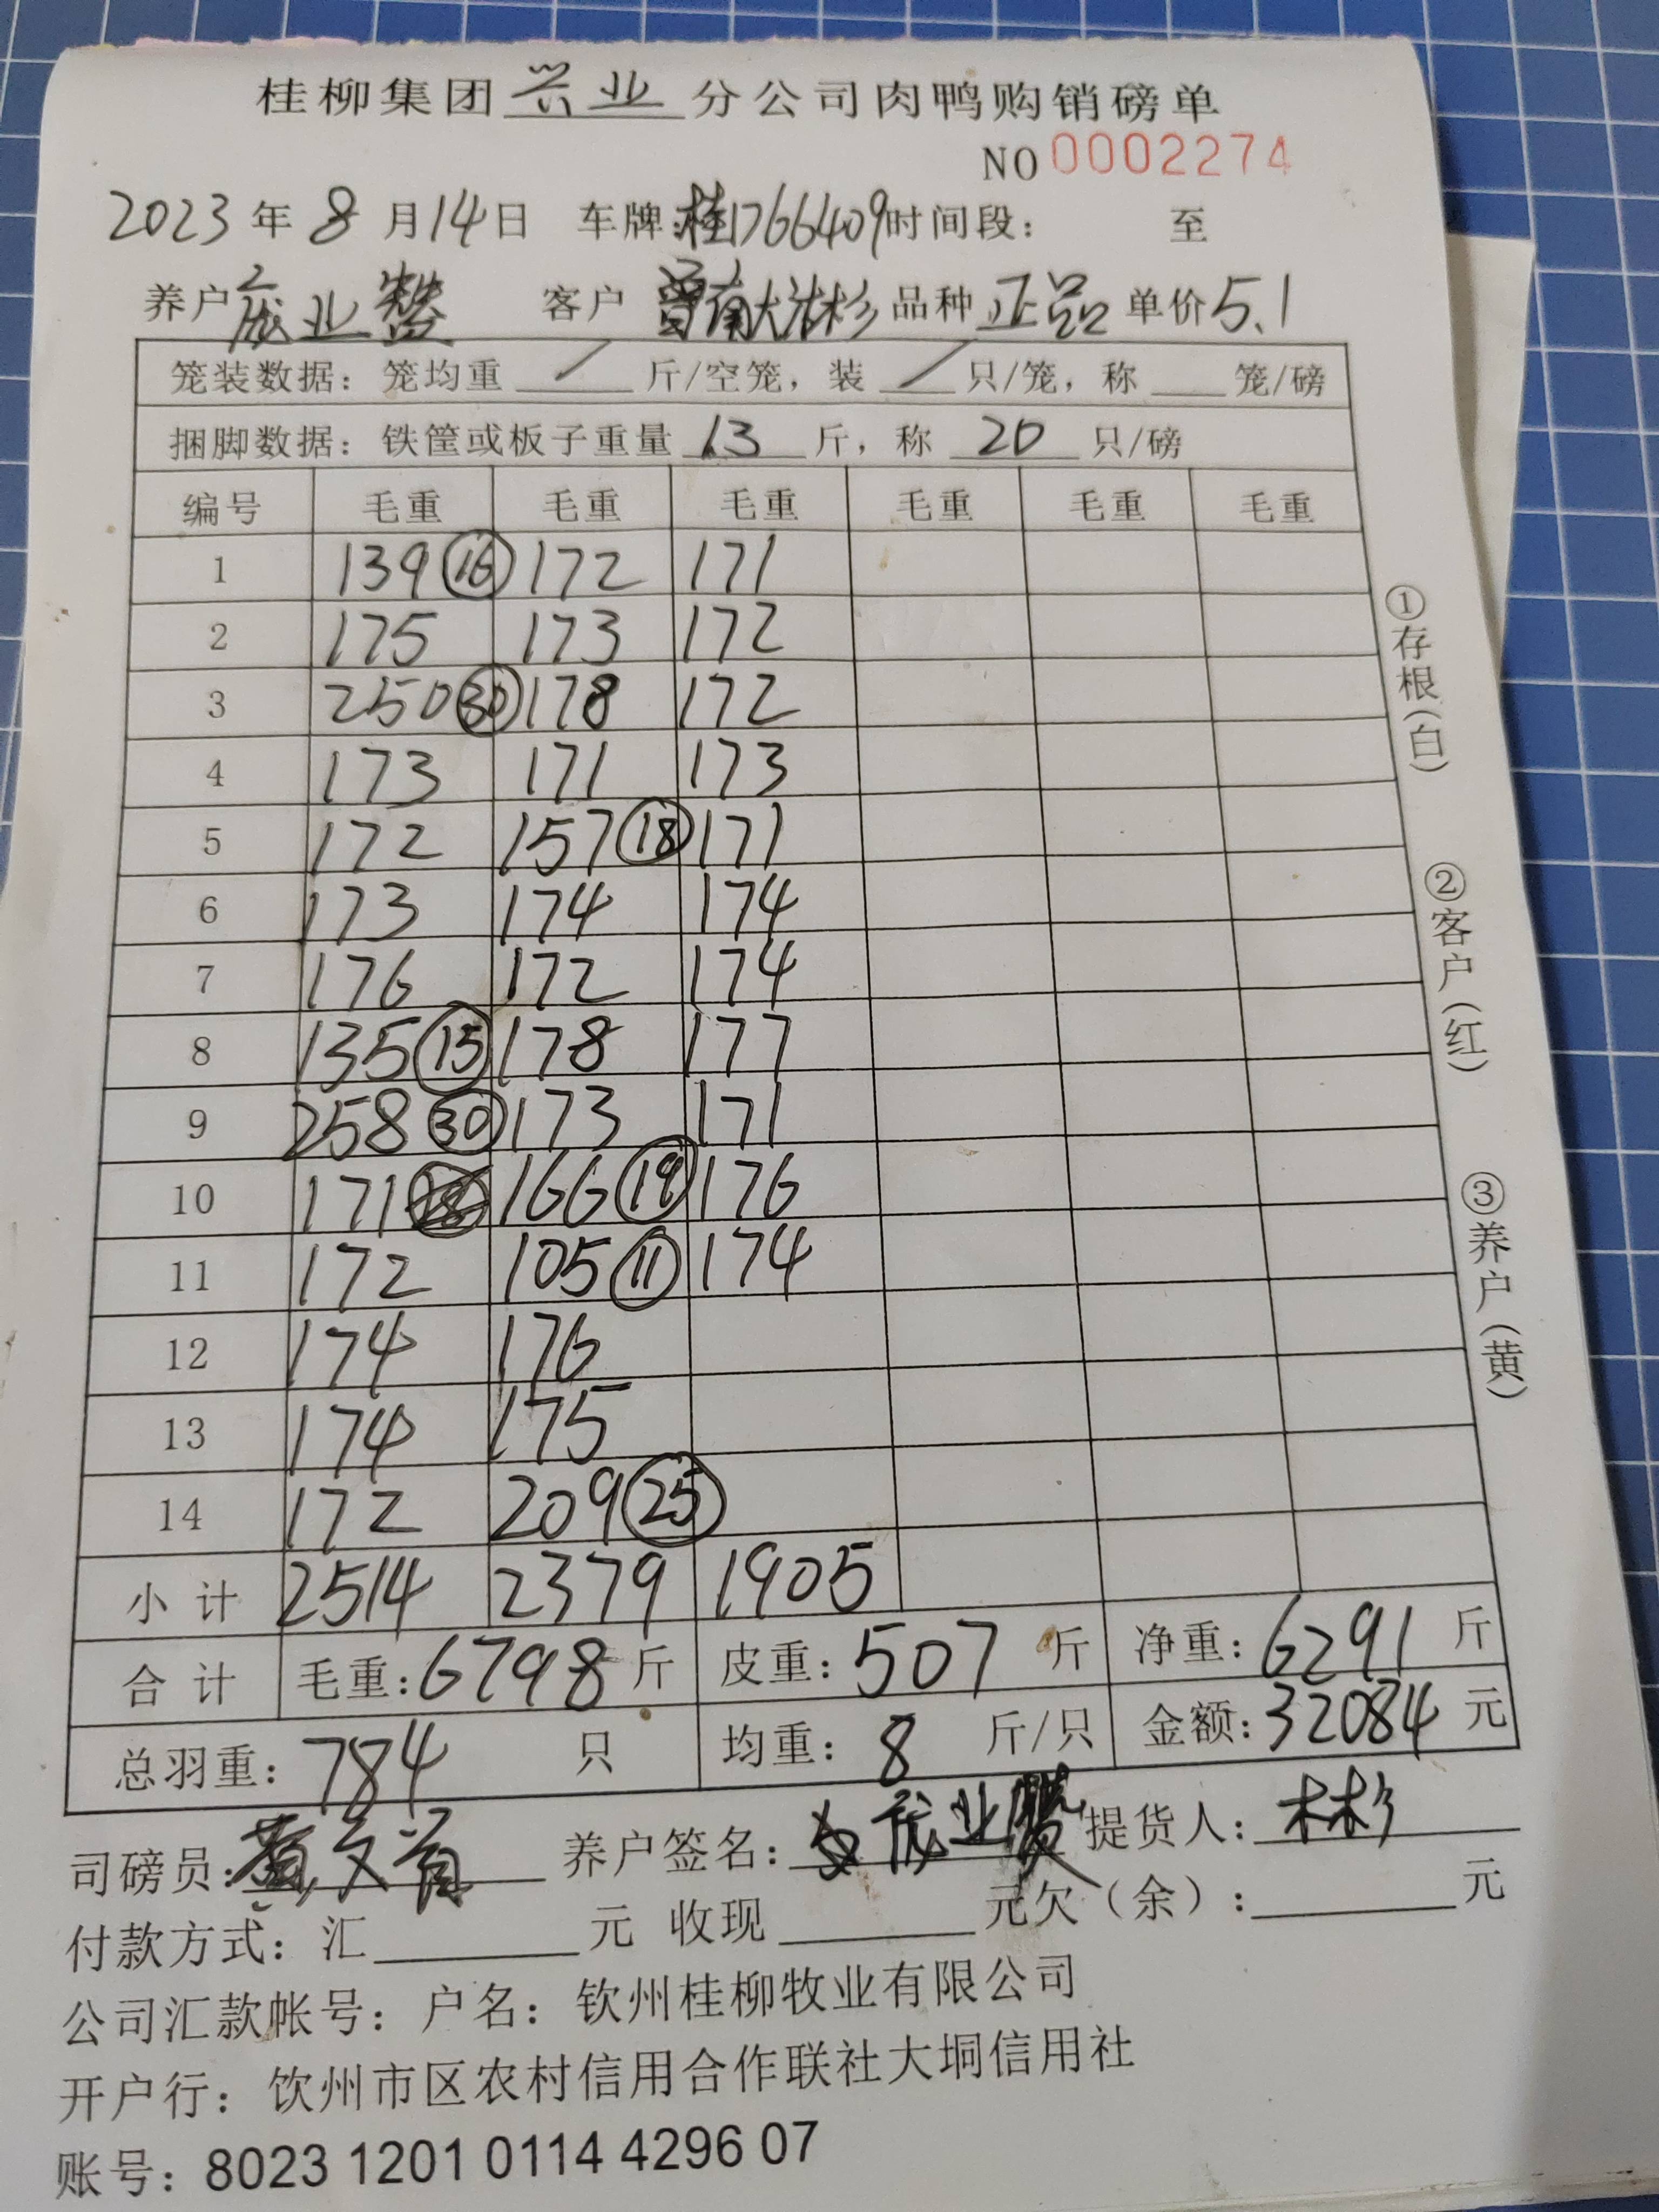 桂柳集团兴业分公司肉鸭购销磅单
NO 0002274
2023年8月14日 车牌:桂1766409时间段: 至
养户庞业 客户 杉 品种 正品 单价5.1
笼装数据:笼均重 / 斤/空笼,装 / 只/笼,称 笼/磅
捆脚数据:铁筐或板子重量 13 斤,称 20 只/磅
编号 毛重 毛重 毛重 毛重 毛重 毛重
1 139 ⑯ 172 171
2 175 173 172
3 250 ㉚ 178 172
4 173 171 173
5 172 157 ⑱ 171
6 173 174 174
7 176 172 174
8 135 ⑮ 178 177
9 258 ㉚ 173 171
10 171 166 ⑲ 176
11 172 105 ⑪ 174
12 174 176
13 174 175
14 172 209 ㉕
小计 2514 2379 1905
合计 毛重:6798斤 皮重:507斤 净重:6291斤
总羽重:784 只 均重:8 斤/只 金额:32084元
司磅员:黄文 养户签名: 业 提货人:林杉
付款方式:汇 元 收现 元欠(余): 元
公司汇款帐号:户名:钦州桂柳牧业有限公司
开户行:饮州市区农村信用合作联社大垌信用社
账号:8023 1201 0114 4296 07
①存根(白)
②客户(红)
③养户(黄)